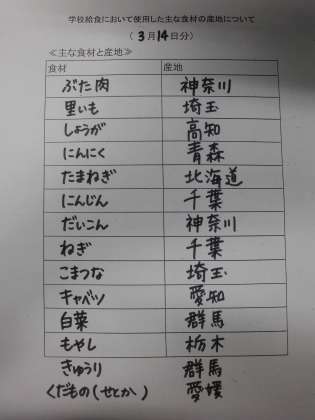 学校給食において使用した主な食材の産地について
( 3月14日分)
≪主な食材と産地≫
食材 産地
ぶた肉 神奈川
里いも 埼玉
しょうが 高知
にんにく 青森
たまねぎ 北海道
にんじん 千葉
だいこん 神奈川
ねぎ 千葉
こまつな 埼玉
キャベツ 愛知
白菜 群馬
もやし 栃木
きゅうり 群馬
くだもの(せとか) 愛媛